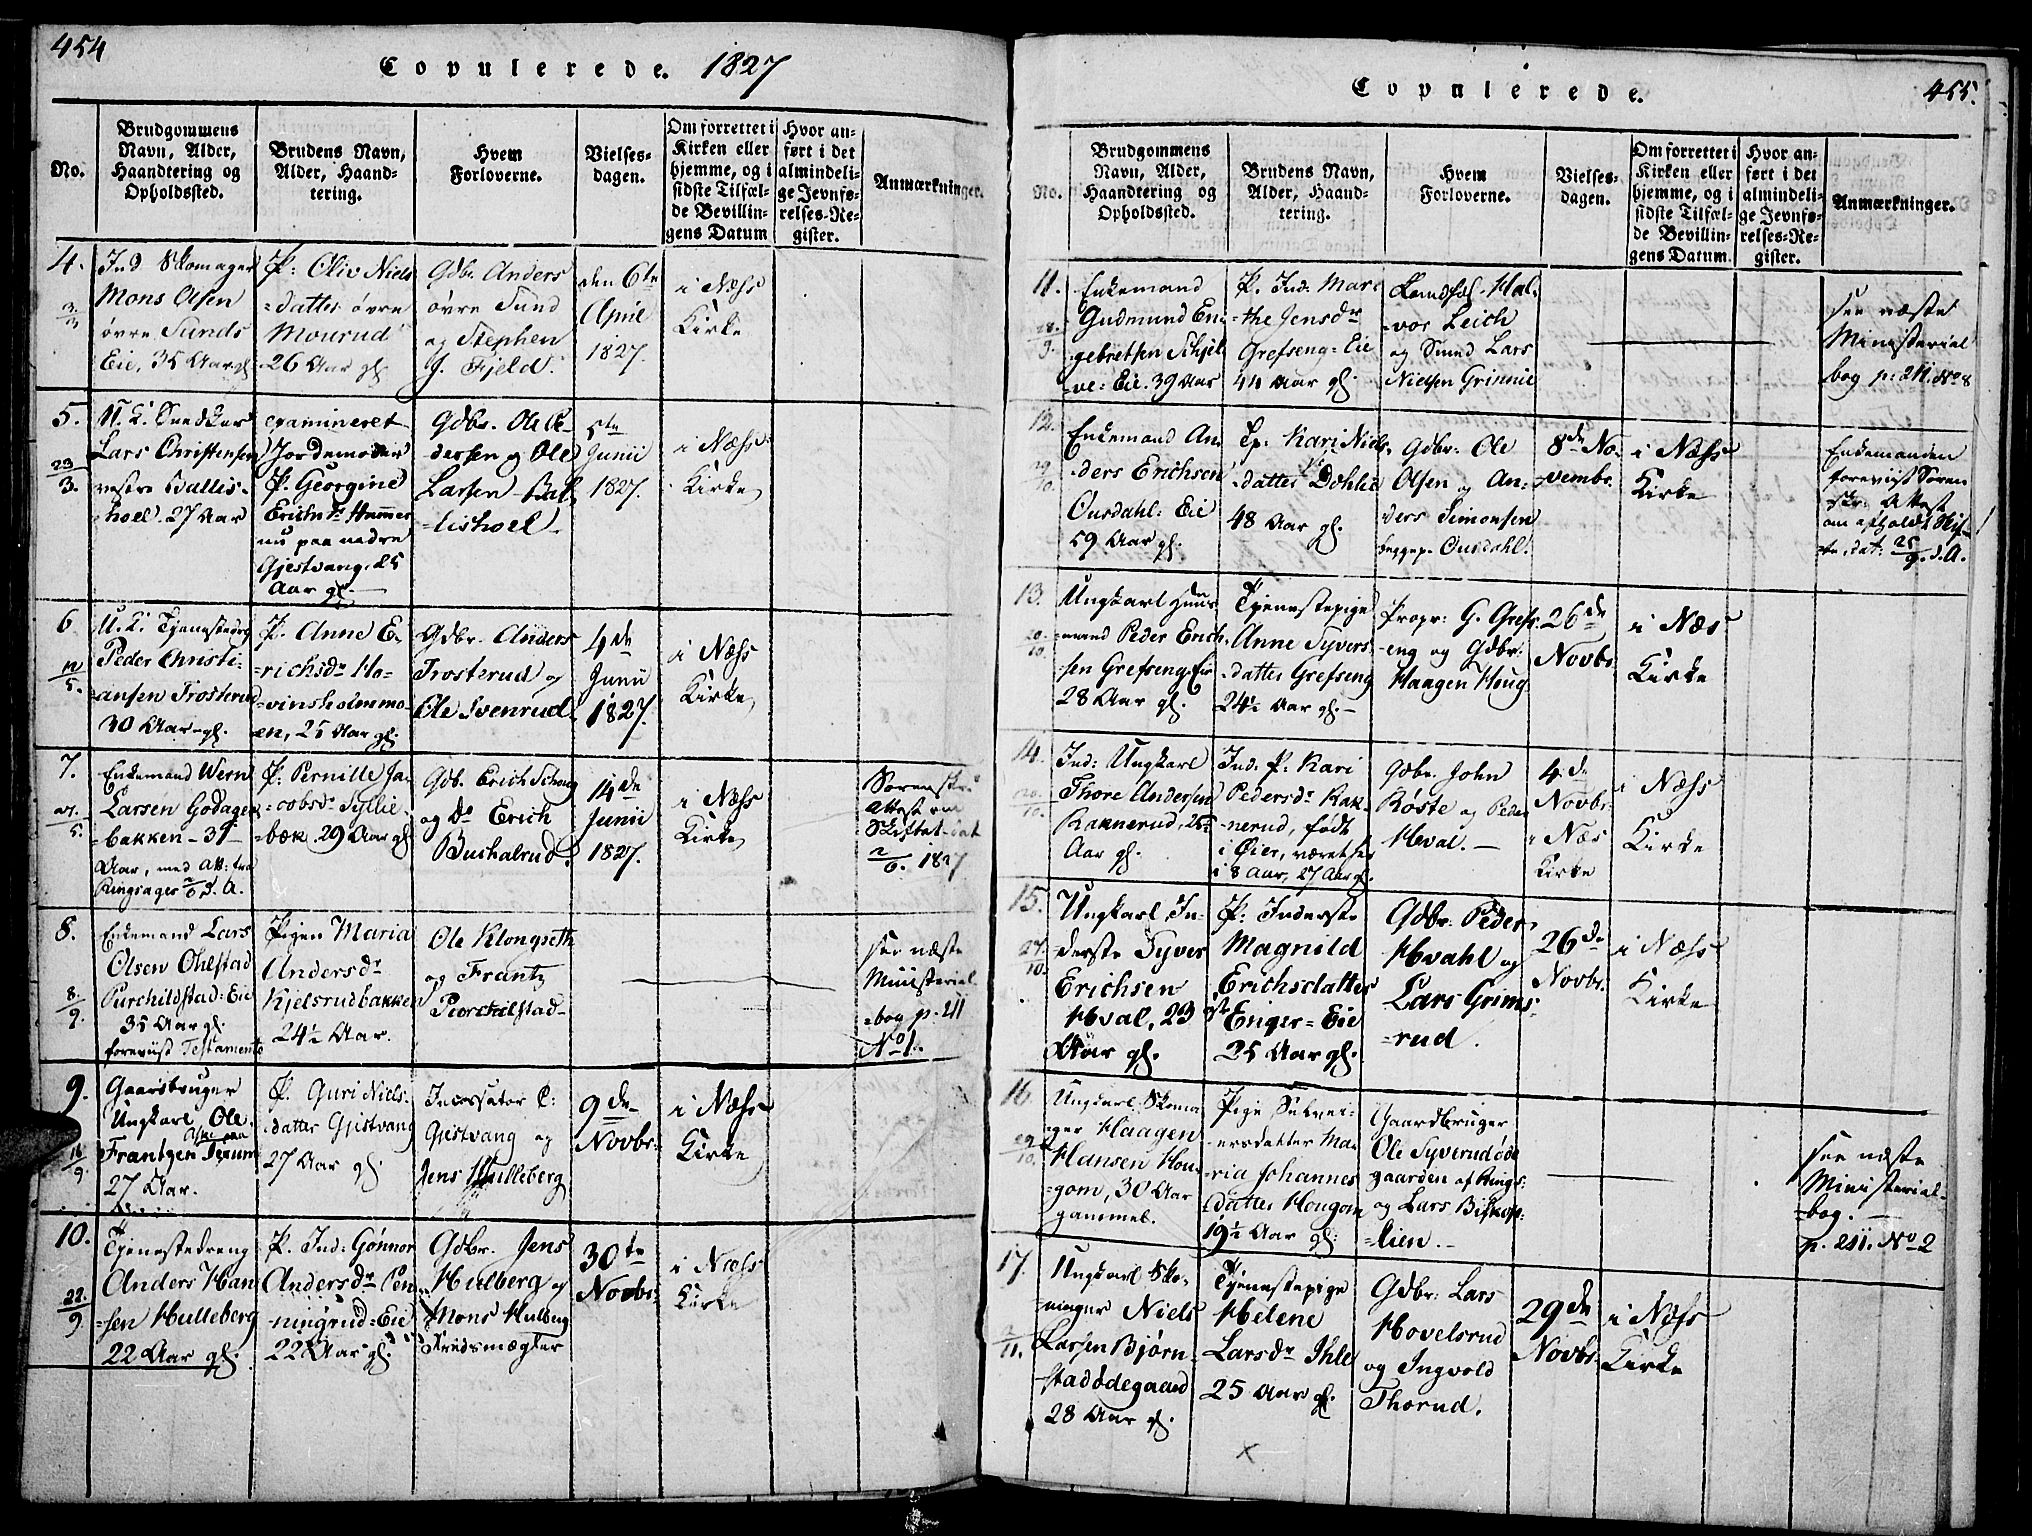 454
Copulerede. 1827
No.
Brudgommens
Navn, Alder,
Haandtering og
Opholdssted.
Brudens Navn,
Alder, Haand-
tering.
Hvem
Forloverne.
Vielses-
dagen.
Om forrettet i
Kirken eller
hjemme, og i
sidste Tilfæl-
de Bevillin-
gens Datum
Hvor an-
ført i det
almindeli-
ge Jevnfø-
relses-Re-
gister.
Anmærkninger.
4.
Ind Skomager
Mons Olsen
øvre Sunds
Eie, 35 Aar gl.
P: Oliv Niels
=datter øvre
Mourud
26 Aar gl.
Gdbr. Anders
øvre Sund
og Stephen
J. Fjeld.
den 6te
April
1827.
i Næss
Kirke
5.
23/3.
U. K.
Lars Christensen
vestre Ballis-
hoel. 27 Aar
examineret
Jordemoder
P. Georgine
Erichsdr Hammer
nu paa nedre
Gjestvang. 25
Aar gl.
Gdbr. Ole Pe-
dersen og Ole
Larsen Bal
=lishoel.
5te
Junii
1827.
i Næss
Kirke
6
12/5.
U. K. Tjenestedrg
Peder Christi=
ansen Trosterud
30 Aar gl.
P. Anne E-
=richsdr Ho=
=vinsholmmo-
en, 25 Aar gl.
Gdbr. Anders
Trosterud og
Ole Ivenrud.
4de
Junii
1827.
i Næss
Kirke
7.
Enkemand Wern
Larsen Godager
=bakken - 31
Aar, med Att: fra
Ringsager 2/6 d. A.
P: Pernille Ja-
=cobsdr Syllie
=bæk. 29 Aar gl.
Gdb. Erich Schoug
og Do Erich
Bushalrud.
14de
Junii
1827.
i Næss
Kirke
Sorenskr:
Attest om
Skiftet dat
2/6. 1827
8.
8/9.
Enkemand Lars
Olsen Ohlstad
Purchildstad=Eie
35 Aar gl.
foreviist Testamente
Pigen Maria
Andersdr
Kjelsrudbakken
24½ Aar.
Ole Klongseth
og Frantz
Porchilstad-
see næste
Ministerial
=bog p. 211
No 1.
9.
16/9
Gaardbruger
Ungkarl Ole
Frantzen
27 Aar.
P. Guri Niels-
datter Gjestvang
27 Aar gl.
Incassator C:
Gjestvang og
Jens Hulleberg
9de
Novbr.
i Næss
Kirke
10.
22/9.
Tjenestedreng
Anders Han
=sen Hulleberg
22 Aar gl.
P. Ind: Gønnor
Andersdr Pen
ningrud=Eie
22 Aar gl.
Gdbr. Jens
Hulberg og
Mons Hulberg
Fridsmægler
30te
Novbr.
i Næss
Kirke
455.
Copulerede.
No.
Brudgommens
Navn, Alder,
Haandtering og
Opholdssted.
Brudens Navn,
Alder, Haand-
tering.
Hvem
Forloverne.
Vielses-
dagen.
Om forrettet i
Kirken eller
hjemme, og i
sidste Tilfæl-
de Bevillin-
gens Datum.
Hvor an-
ført i det
almindeli-
ge Jevnfø-
relses-Re-
gister.
Anmærkninger.
11.
Enkemand
Gudmund En-
gebretsen Schjel
ve=Eie. 39 Aar
P. Ind: Mar
=the Jensdr
Grefseng=Eie
44 Aar gl.
Hal-
=vor Leich
og Smed Lars
Nielsen Grinnie
see næste
Ministerial
bog p: 211. No 8
12.
29/10.
Enkemand An
ders Erichsen
Ousdahl=Eie
59 Aar gl.
Kari Niels
datter Døhlie
48 Aar gl.
Gdbr: Ole
Olsen og An-
ders Simonsen
begge p. Ousdahl.
8de No-
vembr.
i Næss
Kirke
Enkemanden
foreviist Soren
skr: Attest
om afholdt Skif-
te, dat: 25/9. d. A.
13.
20/10.
Ungkarl Huus
mand Peder Erich
sen Grefseng=Eie
28 Aar gl.
Tjenestepige
Anne Syvers
datter Grefseng
24½ Aar gl.
Propr: G. Grefs-
eng og Gdbr:
Haagen Houg
26de
Novbr.
i Næs
Kirke
14.
20/10.
Ind: Ungkarl
Thore Andersen
Raknerud, 25½
Aar gl.
Ind: P: Kari
Pedersdr Rak-
nerud, født
i Øier, været her
i 8 Aar, 27 Aar gl.
Gdbr. John
Røste og Peder
Hval.
4de
Novbr.
i Næs
Kirke
i Næss
Kirke
15.
27/10.
Ungkarl In-
derste Syver
Erichsen
Hval, 29
Aar gl.
P: Inderste
Magnild
Erichsdatter
Enger=Eie
25 Aar gl.
Gdbr: Peder
Hvahl og
Lars Grims
=rud.
26de
Novbr.
i Næss
Kirke
16
29/10.
Ungkarl Skoma
ger Haagen
Hansen Hou-
=gom, 30 Aar
gammel.
Pige
Ma-
ria Johannes
datter Hougom
19½ Aar gl:
Gaardbruger
Ole Syverudøde
gaarden af Rings:
og Lars Biskop=
=lien.
see næste
Ministerial-
=bog.
p. 211. No 2
17.
2/11.
Ungkarl Sko-
Niels
Larsen Bjørn
stadødegaard
28 Aar gl.
Tjenestepige
Helene
Larsdr Ihle
25 Aar gl.
Gdbr: Lars
Hovelsrud
og Ingvold
Thorud.
29de
Novbr.
i Næss
Kirke